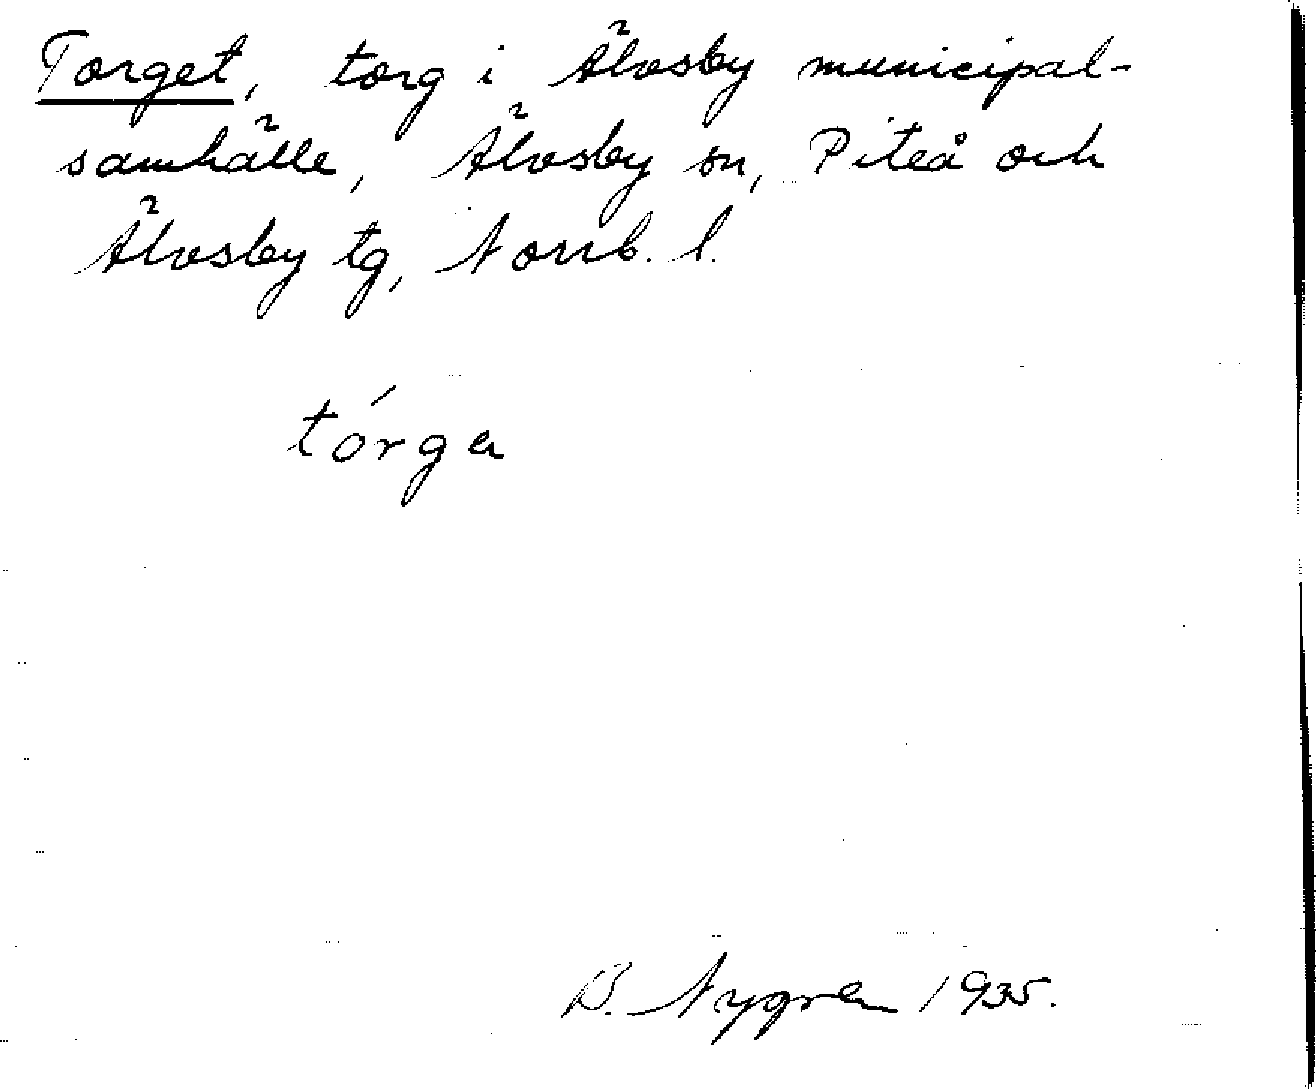 Torget, torg i Älvsby municipal-
samhälle, Älvsby sn, Piteå och
Älvsby tg, Norrb. l.
tórga
B. Nygren 1935.